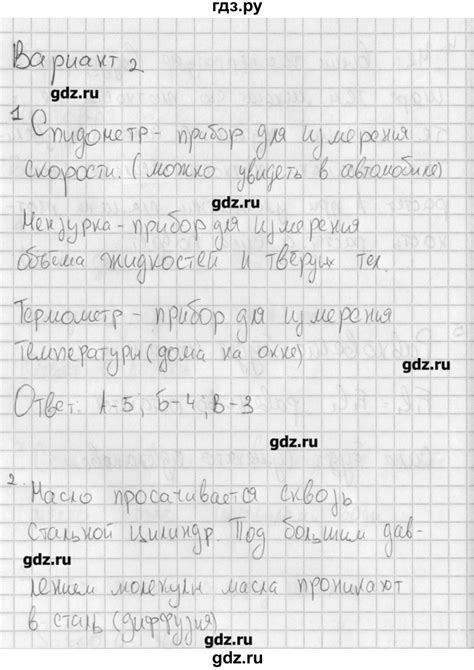 гдз.ру
Вариант 2
gdz.ru
1 Спидометр - прибор для измерения
скорости. (можно увидеть в автомобиле)
gdz.ru
Мензурка - прибор для измерения
объёма жидкостей и твёрдых тел.
Термометр - прибор для измерения
температуры (дома на окне)
gdz.ru
Ответ: А-5; Б-4; В-3
gdz.ru
2. Масло просачивается сквозь
стальной цилиндр. Под большим дав-
gdz.ru
gdz.ru
лением молекулы масла проникают
в сталь (диффузия)
gdz.ru
gdz.ru